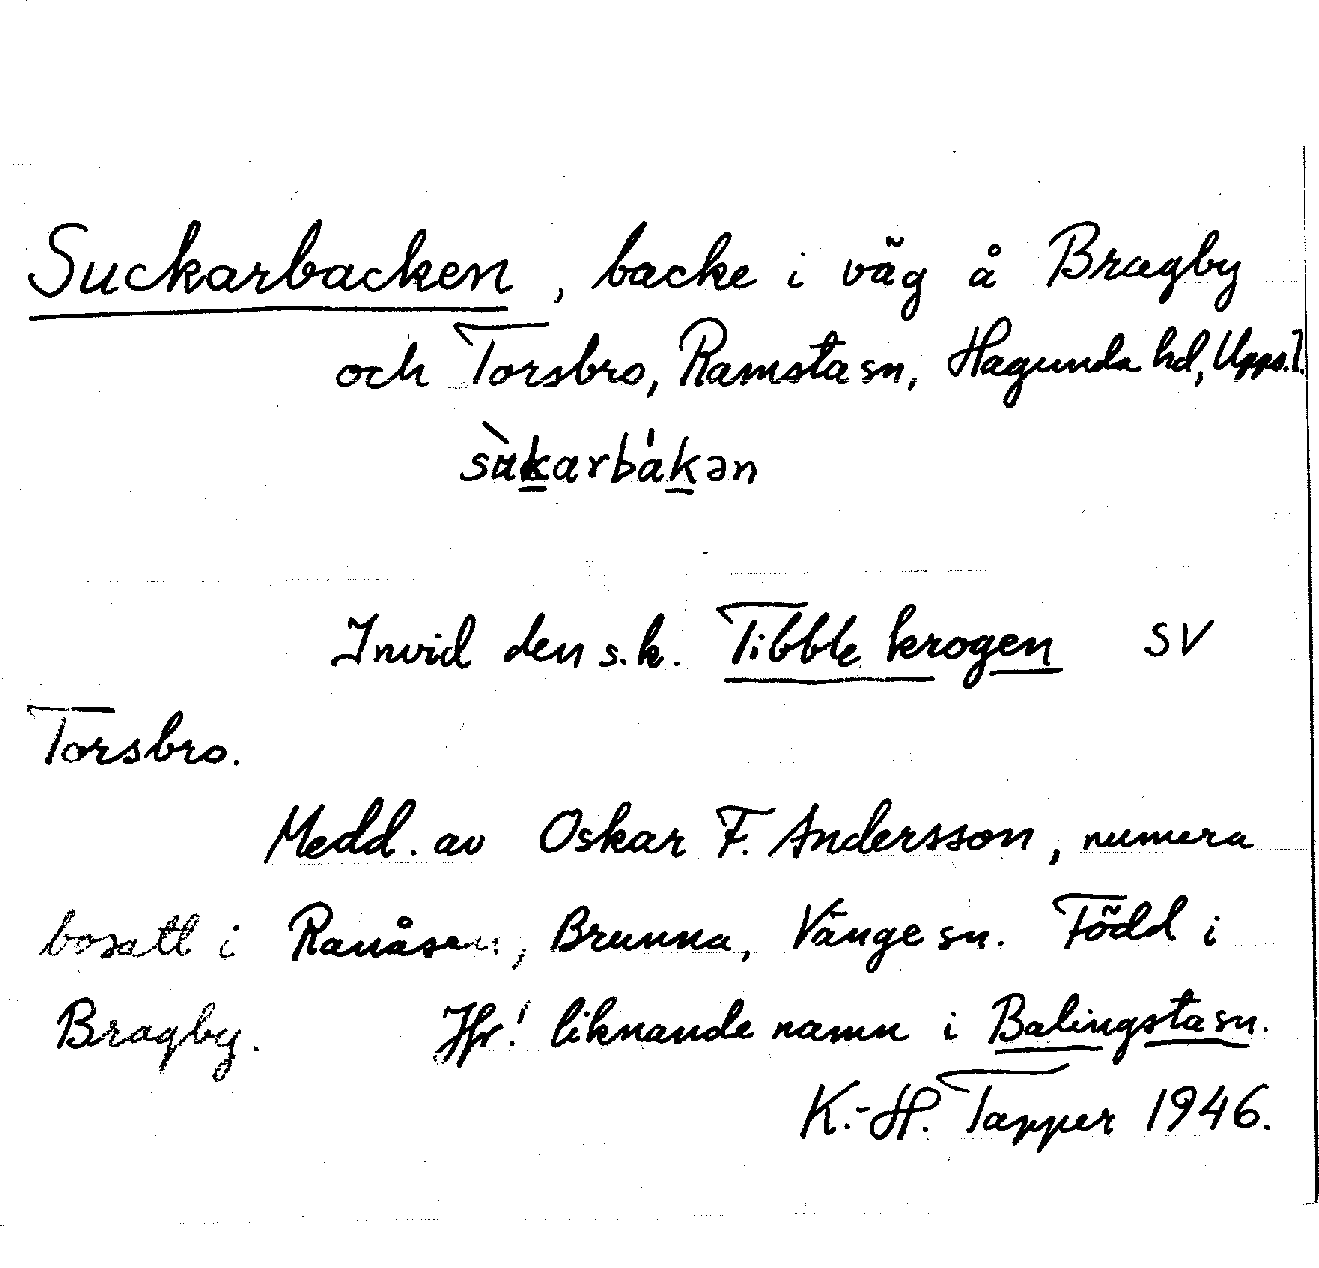 Suckarbacken, backe i väg å Bragby
och Torsbro, Ramsta sn, Hagunda hd, Upps.l.
sùkarbákən
Invid den s.k. Tibble krogen SV
Torsbro.
Medd. av Oskar F. Andersson, numera
bosatt i Ranåsen, Brunna, Vänge sn. Född i
Bragby. Jfr! liknande namn i Balingsta sn.
K.-H. Tapper 1946.